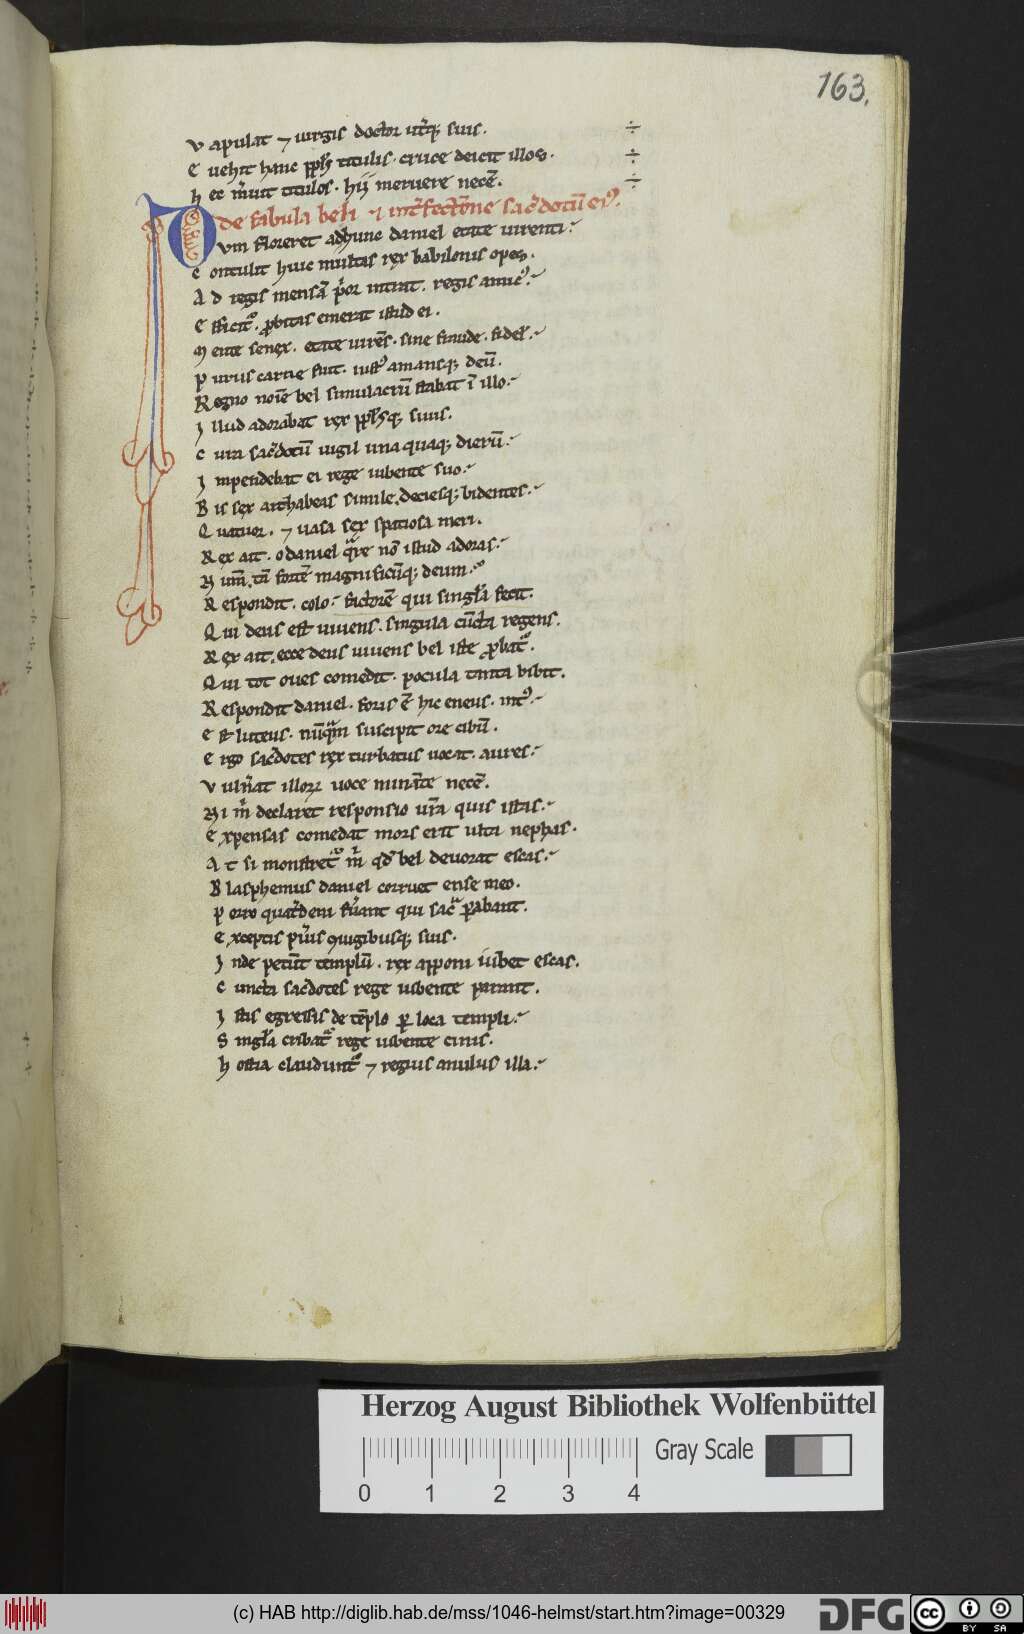 163.
V apulat ⁊ uirgis doctor utq̄ꝫ suis. ÷
E uehit hanc pp̄lꝰ titulis · cruce deicit illos. ÷
H ec m̄uit titulos · hij meruere necē. ÷
de fabula beli ⁊ int̄fectōne sac̄dotū eiꝰ.
D vm floreret adhuc daniel etate uirenti :
C ontulit huic multas rex babilonis opes.
A d regis mensā p̄or intrat . regis amicꝰ :
E fficitꝰ . ꝓbitas emerat istud ei .
M ente senex . etate uirēs . sine fraude . fidel' :
P urus carne fuit . iustꝰ amansqꝫ deū .
R egno noīe bel simulacrū stabat ī illo :
I llud adorabat rex pp̄lꝰqꝫ suus .
C ura sac̄dotū uigil una quaqꝫ dierū :
I npendebat ei rege iubente suo :
B is sex arthabeas simile . deciesqꝫ bidentes :
Q uatuor . ⁊ uasa sex spatiosa meri .
R ex ait . o daniel q̄re nō istud adoras :
N um̄ . tā fortē magnificūqꝫ deum :
R espondit . colo : factorē qui singl'a fecit .
Q ui deus est uiuens . singula cūcta regens .
R ex ait . ecce deus uiuens bel iste ꝓbatꝰ .
Q ui tot oues comedit . pocula tanta bibit .
R espondit daniel . foris ē hic eneus . intꝰ :
E st luteus . nūq̄m suscipit ore cibū .
E rgo sac̄dotes rex turbatus uocat . aures :
V uln̄at illoꝝ uoce minante necē .
N i m̄ declaret responsio ur̄a quis istas :
E xpensas comedat mors erit ulta nephas .
A t si monstretꝰ m̄ qd̄ bel deuorat escas :
B lasphemus daniel corruet ense meo .
P orro quat̄deni fu̅ant qui sac̄ parabant .
E xceptis pu̅is ꝯiugibusqꝫ suis .
I nde petūt templū . rex apponi iubet escas .
C uncta sac̄dotes rege iubente parant .
I stis egressis de tēplo ꝑ loca templi :
S ingl'a cribatꝰ rege iubente cinis .
H ostia clauduntꝰ ⁊ regius anulus illa :
Herzog August Bibliothek Wolfenbüttel
Gray Scale
0 1 2 3 4
(c) HAB http://diglib.hab.de/mss/1046-helmst/start.htm?image=00329
DFG
cc BY SA